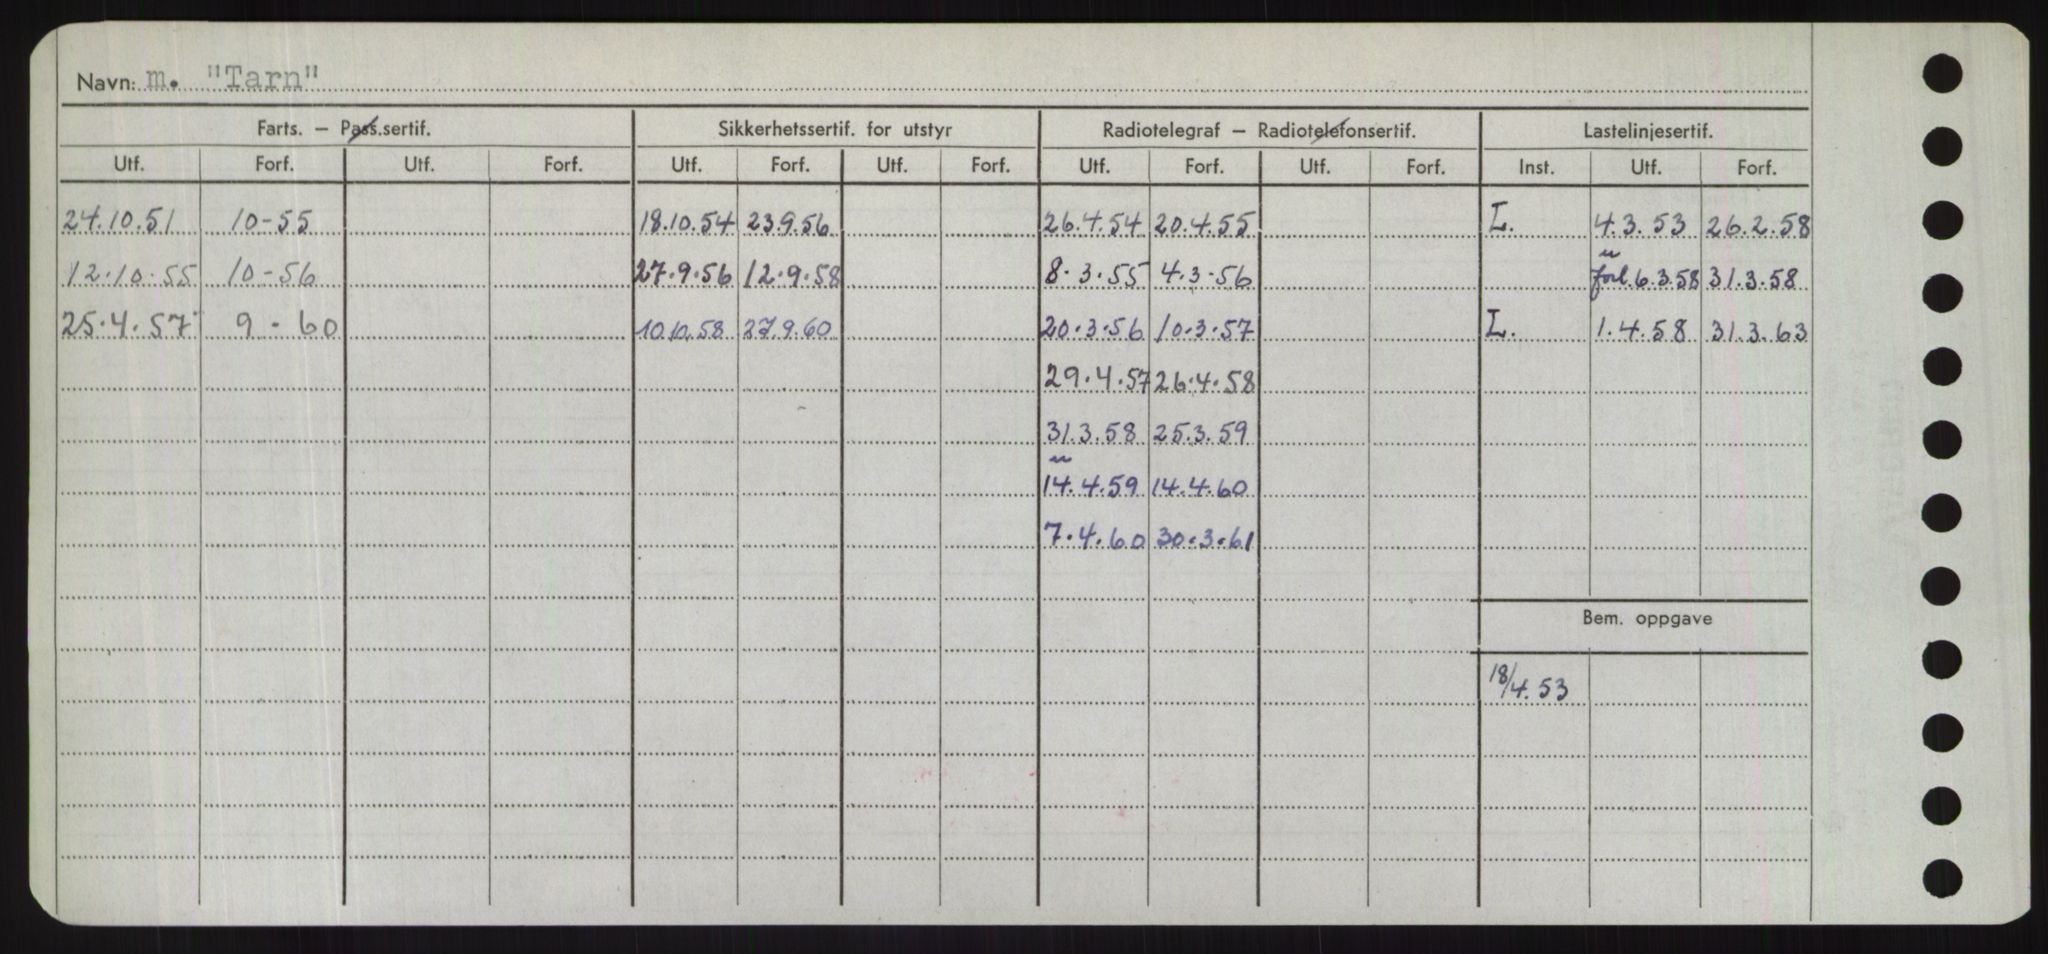 Navn: m. "Tarn"
Farts. — Pass.sertif. Sikkerhetssertif. for utstyr Radiotelegraf — Radiotelefonsertif. Lastelinjesertif.
Utf. Forf. Utf. Forf. Utf. Forf. Utf. Forf. Utf. Forf. Utf. Forf. Inst. Utf. Forf.
24.10.51 10-55 18.10.54 23.9.56 26.4.54 20.4.55 L. 4.3.53 26.2.58
12.10.55 10-56 27.9.56 12.9.58 8.3.55 4.3-56 forl. 6.3.58 31.3.58
25.4.57 9-60 10.10.58 27.9.60 20.3.56 10.3.57 L. 1.4.58 31.3.63
29.4.57 26.4.58
31.3.58 25.3.59
14.4.59 14.4.60
7.4.60 30.3.61
Bem. oppgave
18/4.53